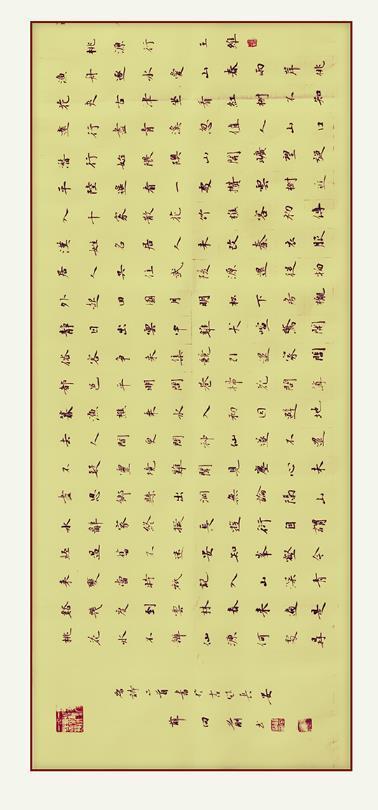 桃源行 王維
漁舟逐水愛山春兩岸桃
花夾古津坐看紅樹不知
遠行盡青溪忽值人山口
潛行始隈隩山開曠望旋
平陸遙看一處攢雲樹近
入千家散花竹樵客初傳
漢姓名居人未改秦衣服
居人共住武陵源還從物
外起田園月明松下房櫳
靜日出雲中雞犬喧驚聞
俗客爭來集競引還家問
都邑平明閭巷掃花開薄
暮漁樵乘水入初因避地
去人間更問神仙遂不還
不疑靈境難聞見塵心未
盡思鄉縣出洞無論隔山
水辭家終擬長遊衍自謂
經過舊不迷安知峰壑今
來變當時祇記入山深青
谿幾度到雲林春來遍是
桃花水不辨仙源何處尋